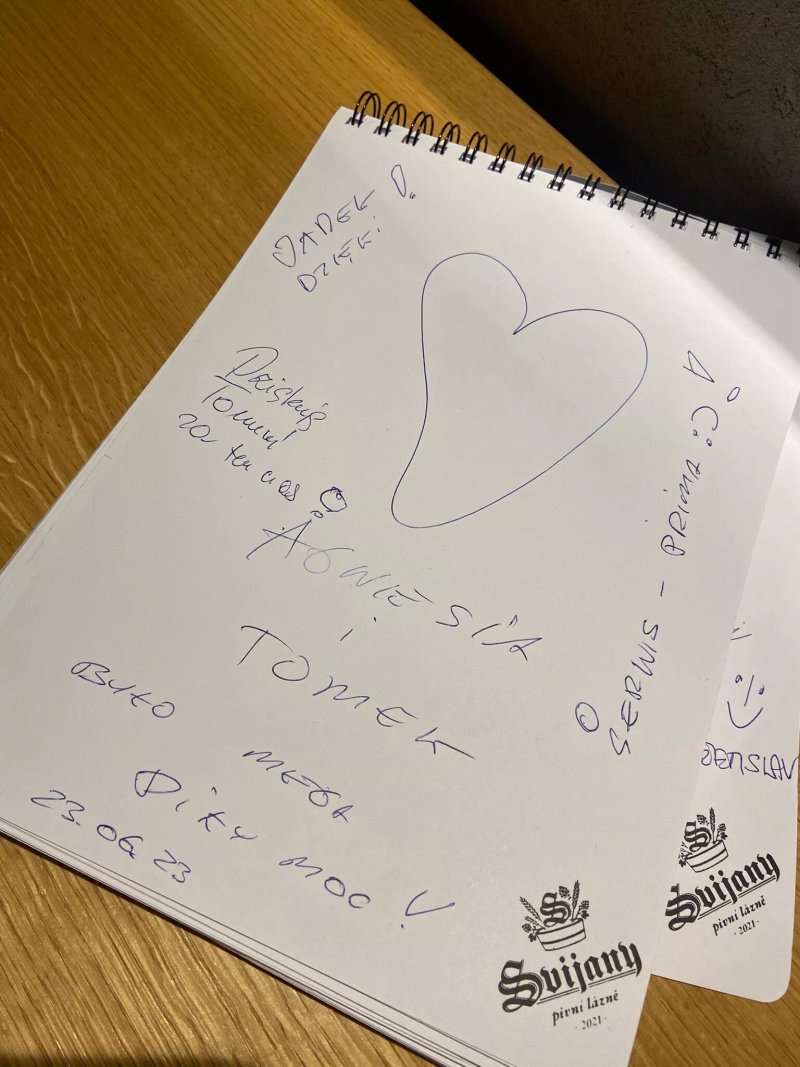 JAREK !
DZIĘKI
Dziękuję
Tomuni
za ten czas
AGNIESIA
i
TOMEK
BYŁO MEGA
DÍKY MOC !
23.06.23
SERWIS - PRIMA :) !
Svijany
pivní lázně
· 2021 ·
:)
Svijany
pivní lázně
· 2021 ·